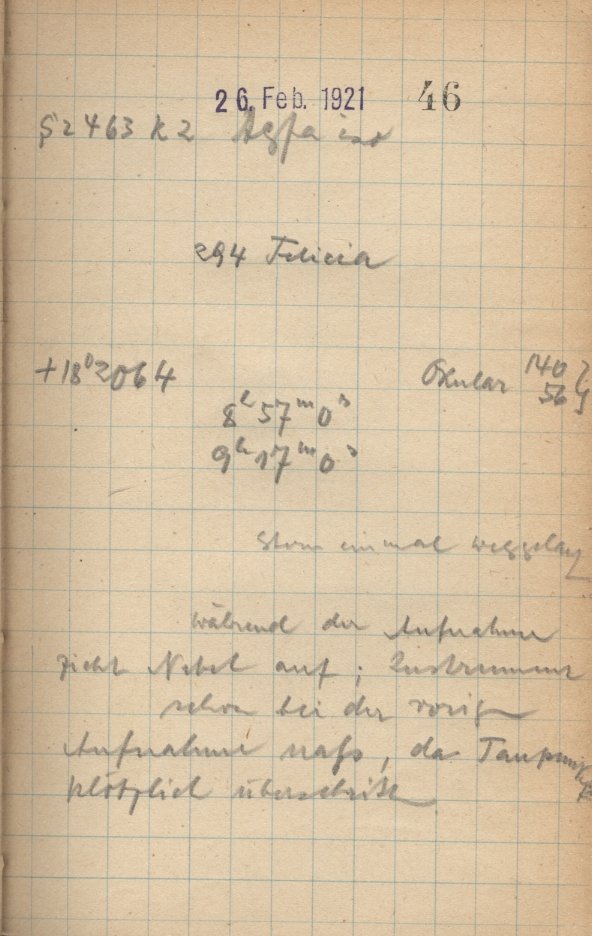 26. Feb. 1921 46
S2463 k2 Agfa iso
294 Felicia
+18°2064 Okular 140
56
8h 57m 0s
9h 17m 0s
Stern einmal
während der Aufnahme
zieht Nebel auf; Instrument
schon bei der vorig
Aufnahme naß, da Taupunkt
plötzlich überschritt